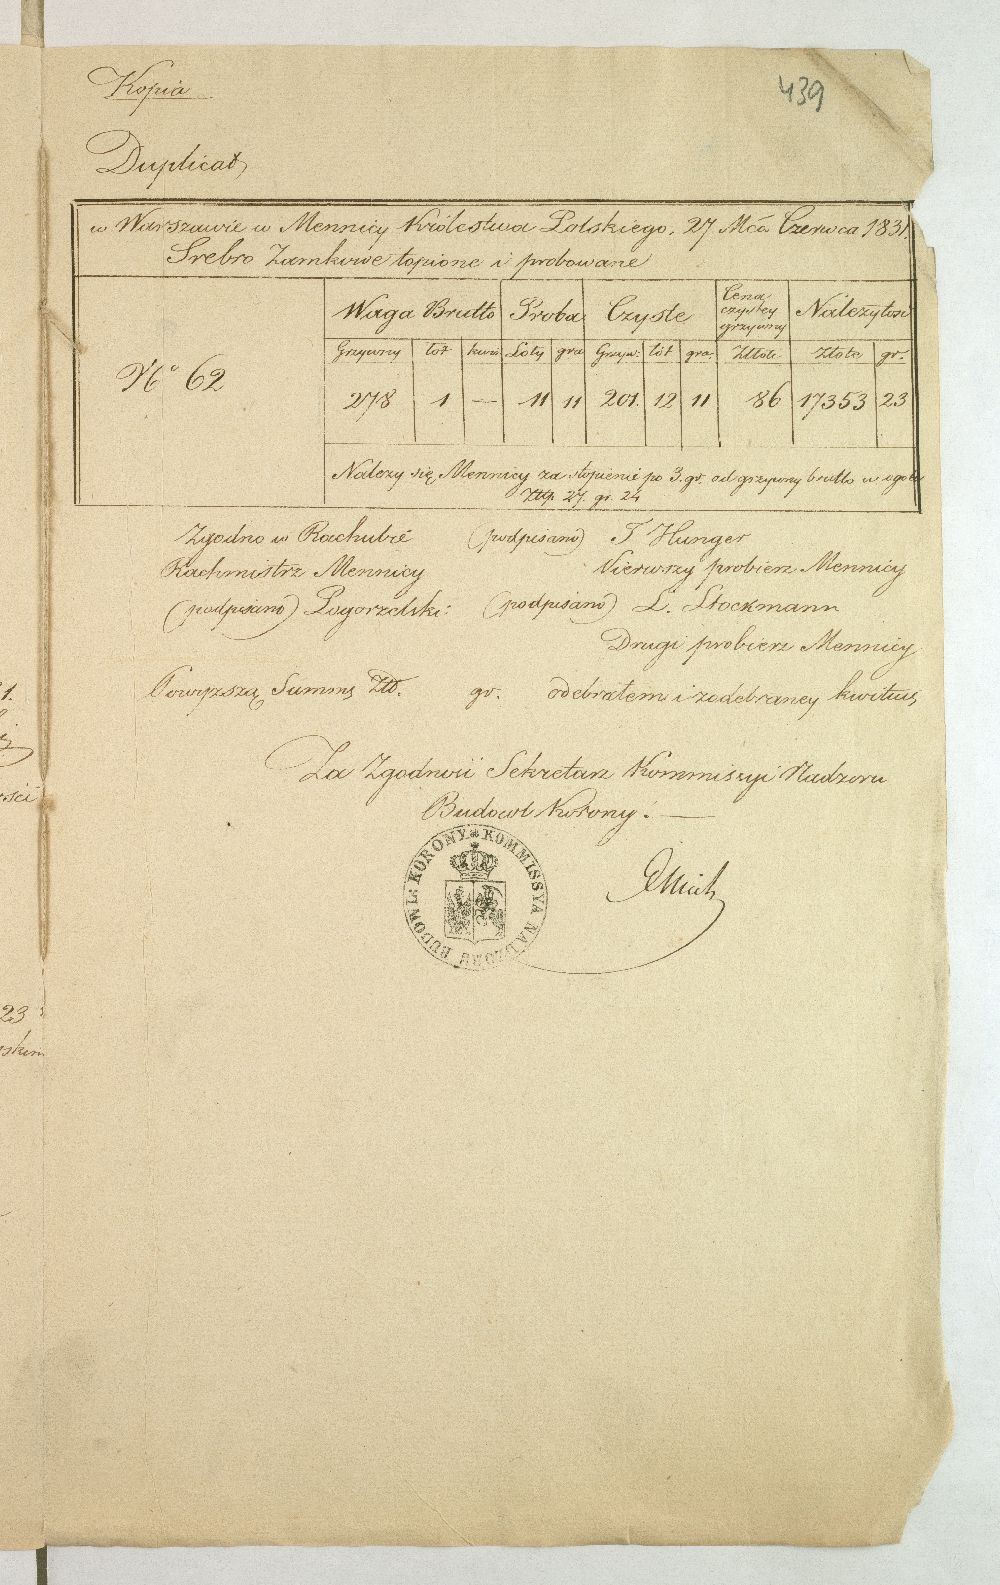 439
Kopia
Duplicat
w Warszawie w Mennicy Królestwa Polskiego. 27 Mca Czerwca 1831.
Srebro Zamkowe topione i probowane
Waga Brutto Proba Czyste Cena czystey grzywny Należytość
Grzywny łót kwin Łoty gra Grzyw: łót gra. Złote Złote gr.
No 62 278 1 — 11 11 201. 12 11 86 17353 23
Nalezy się Mennicy za stopienie po 3. gr. od grzywny brutto w ogole
Złp. 27. gr. 24
Zgodno w Rachubie (podpisano) F Hunger
Rachmistrz Mennicy Pierwszy probierz Mennicy
(podpisano) Pogorzelski: (podpisano) L. Stockmann
Drugi probierz Mennicy
Powyzszą Summę Złł. gr. odebrałem i z odebraney kwituię
Za Zgodność Sekretarz Kommissyi Nadzoru
Budowl Korony: —
KOMMISSYA NADZORU BUDOWL: KORONY
1.
ści
23